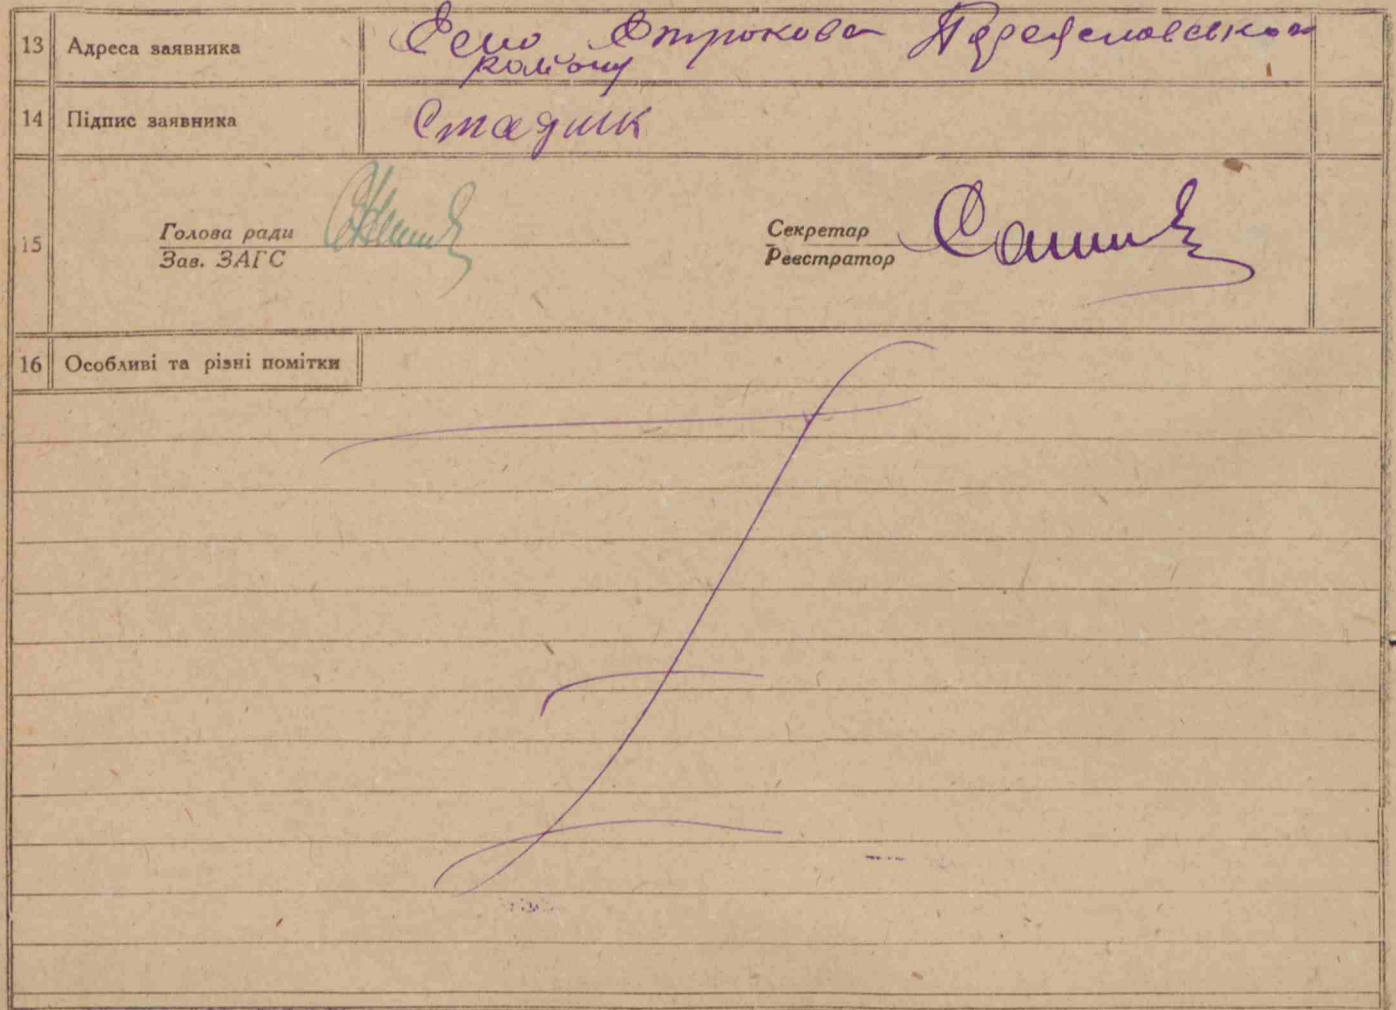 13 Адреса заявника Село Строкова Переяславського
району
14 Підпис заявника Стадник
15 Голова ради Секретар
Зав. ЗАГС Реєстратор
16 Особливі та різні помітки